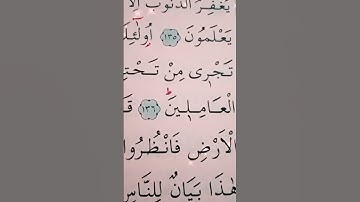 يَغْفِرُ الذُّنُوبَ اِلَّا
يَعْلَمُونَ ﴿١٣٥﴾ اُولٰٓئِ
تَجْر۪ى مِنْ تَحْتِ
الْعَامِل۪ينَ ﴿١٣٦﴾ قَ
الْاَرْضِ فَانْظُرُوا
هٰذَا بَيَانٌ لِلنَّاسِ